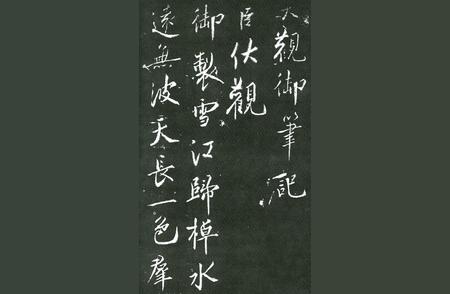 大觀御筆記
臣伏觀
御製雪江歸棹水
遠無波天長一色羣